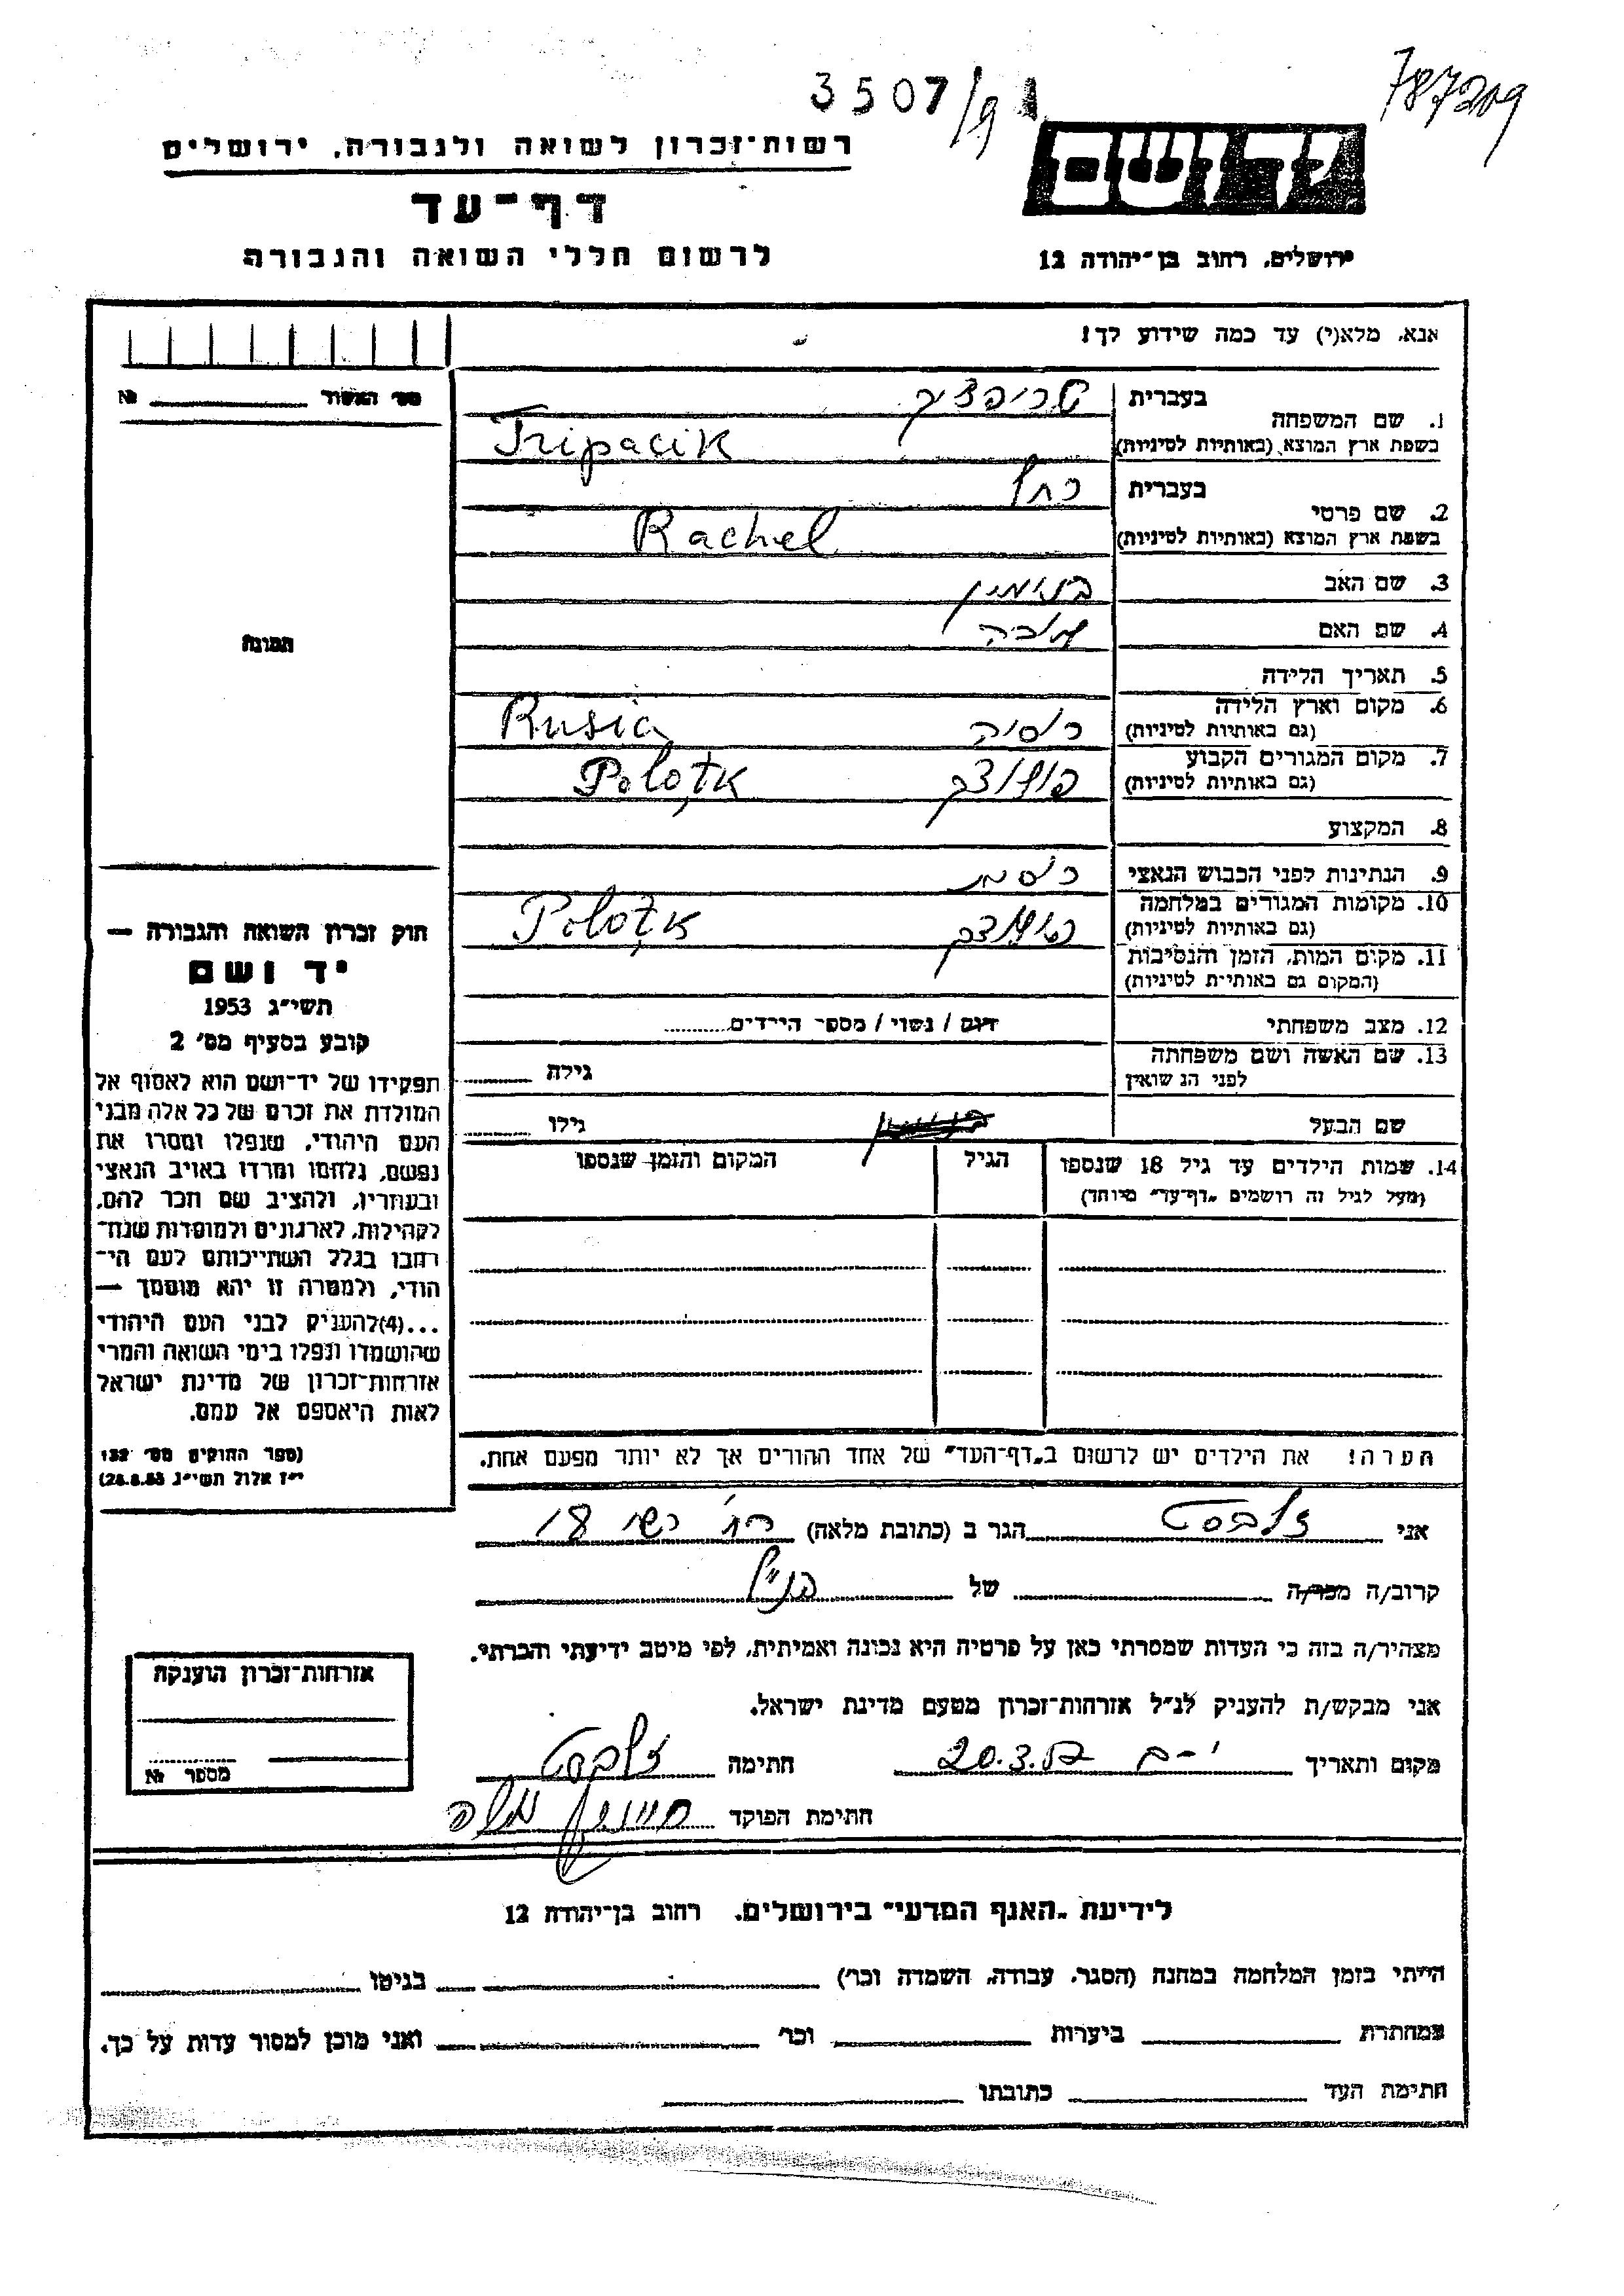 3507/91
787209
רשות־זכרון לשואה ולגבורה, ירושלים
יד ושם
דף־עד
לרשום חללי השואה והגבורה
ירושלים, רחוב בן־יהודה 12
אנא, מלא(י) עד כמה שידוע לך!
מס' האשור №
תמונה
1. שם המשפחה
בעברית טריפצ'יק
בשפת ארץ המוצא (באותיות לטיניות) Tripacik
2. שם פרטי
בעברית רחל
בשפת ארץ המוצא (באותיות לטיניות) Rachel
3. שם האב בנימין
4. שם האם
5. תאריך הלידה
6. מקום וארץ הלידה (גם באותיות לטיניות) רוסיה Rusia
7. מקום המגורים הקבוע (גם באותיות לטיניות) פולוצק Polotk
8. המקצוע
9. הנתינות לפני הכבוש הנאצי רוסית
10. מקומות המגורים במלחמה (גם באותיות לטיניות) פולוצק Polotk
11. מקום המות, הזמן והנסיבות (המקום גם באותיות לטיניות)
12. מצב משפחתי רווק / נשוי / מספר הילדים
13. שם האשה ושם משפחתה לפני הנשואין גילה
שם הבעל גילו
14. שמות הילדים עד גיל 18 שנספו הגיל המקום והזמן שנספו
(מעל לגיל זה רושמים „דף־עד" מיוחד)
הערה! את הילדים יש לרשום ב„דף־העד" של אחד ההורים אך לא יותר מפעם אחת.
חוק זכרון השואה והגבורה —
יד ושם
תשי"ג 1953
קובע בסעיף מס' 2
תפקידו של יד־ושם הוא לאסוף אל
המולדת את זכרם של כל אלה מבני
העם היהודי, שנפלו ומסרו את
נפשם, נלחמו ומרדו באויב הנאצי
ובעוזריו, ולהציב שם וזכר להם,
לקהילות, לארגונים ולמוסדות שנח־
רבו בגלל השתייכותם לעם הי־
הודי, ולמטרה זו יהא מוסמך —
...(4) להעניק לבני העם היהודי
שהושמדו ונפלו בימי השואה והמרי
אזרחות־זכרון של מדינת ישראל
לאות היאספם אל עמם.
(ספר החוקים מס' 132
י"ז אלול תשי"ג 28.8.53)
אני זילברסט הגר ב (כתובת מלאה) רח' רשי 18
קרוב/ה מכר/ה של הנ"ל
מצהיר/ה בזה כי העדות שמסרתי כאן על פרטיה היא נכונה ואמיתית, לפי מיטב ידיעתי והכרתי.
אני מבקש/ת להעניק לנ"ל אזרחות־זכרון מטעם מדינת ישראל.
מקום ותאריך י-ם 20.3.57 חתימה זילברסט
חתימת הפוקד משה
אזרחות־זכרון הוענקה
מספר №
לידיעת „האגף המדעי" בירושלים, רחוב בן־יהודה 12
הייתי בזמן המלחמה במחנה (הסגר, עבודה, השמדה וכר') בגיטו
במחתרת ביערות וכר' ואני מוכן למסור עדות על כך.
חתימת העד כתובתו